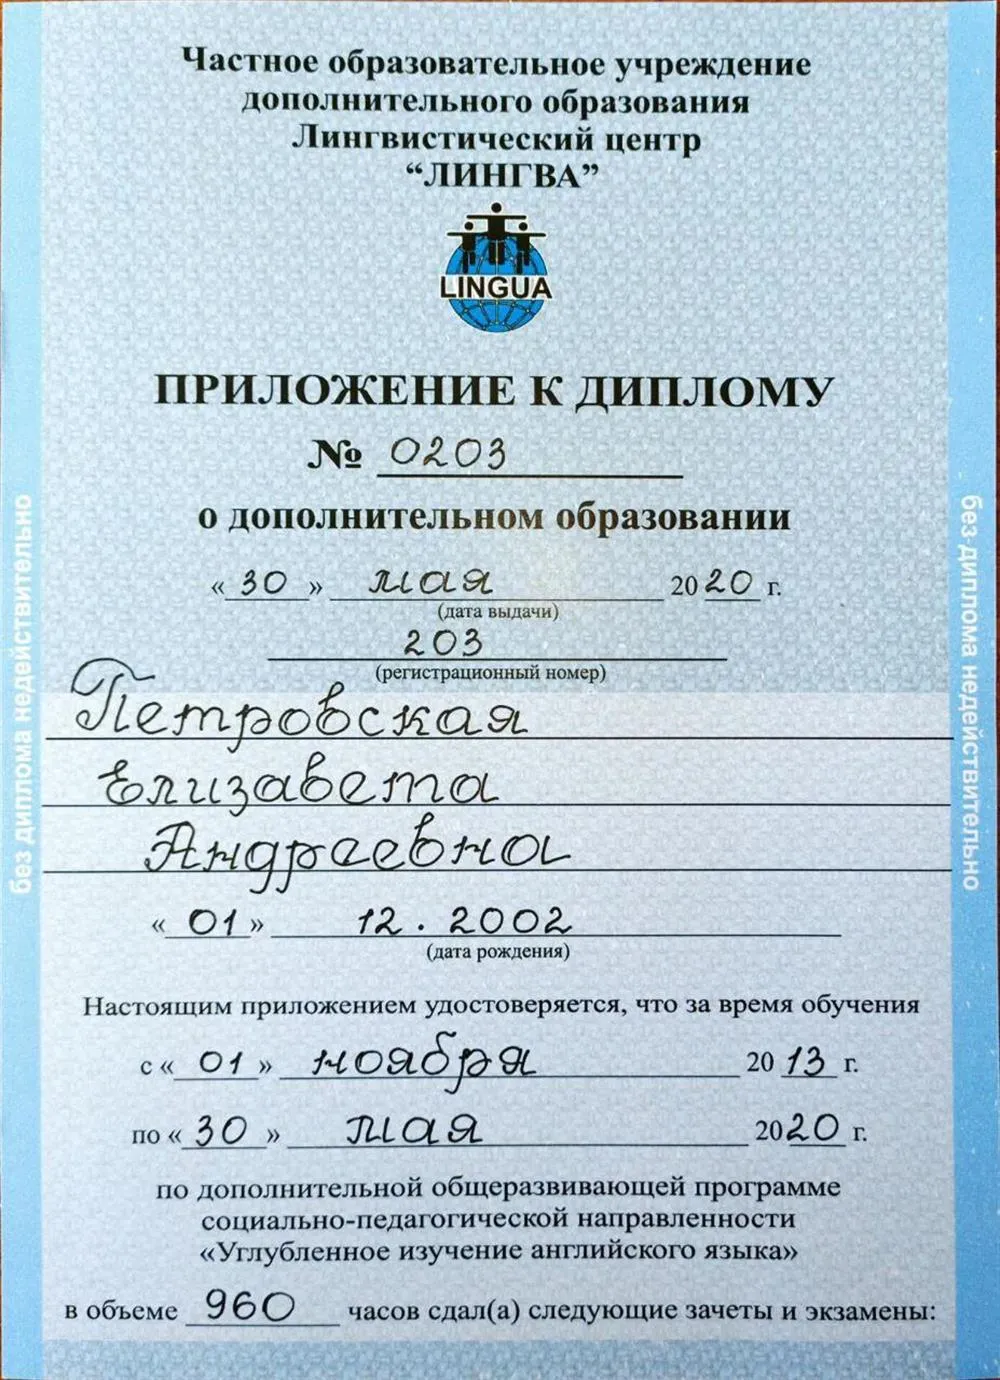 Частное образовательное учреждение
дополнительного образования
Лингвистический центр
“ЛИНГВА”
LINGUA
ПРИЛОЖЕНИЕ К ДИПЛОМУ
№ 0203
о дополнительном образовании
« 30 » мая 2020 г.
(дата выдачи)
203
(регистрационный номер)
Петровская
Елизавета
Андреевна
« 01 » 12.2002
(дата рождения)
Настоящим приложением удостоверяется, что за время обучения
с « 01 » ноября 2013 г.
по « 30 » мая 2020 г.
по дополнительной общеразвивающей программе
социально-педагогической направленности
«Углубленное изучение английского языка»
в объеме 960 часов сдал(а) следующие зачеты и экзамены:
без диплома недействительно
без диплома недействительно